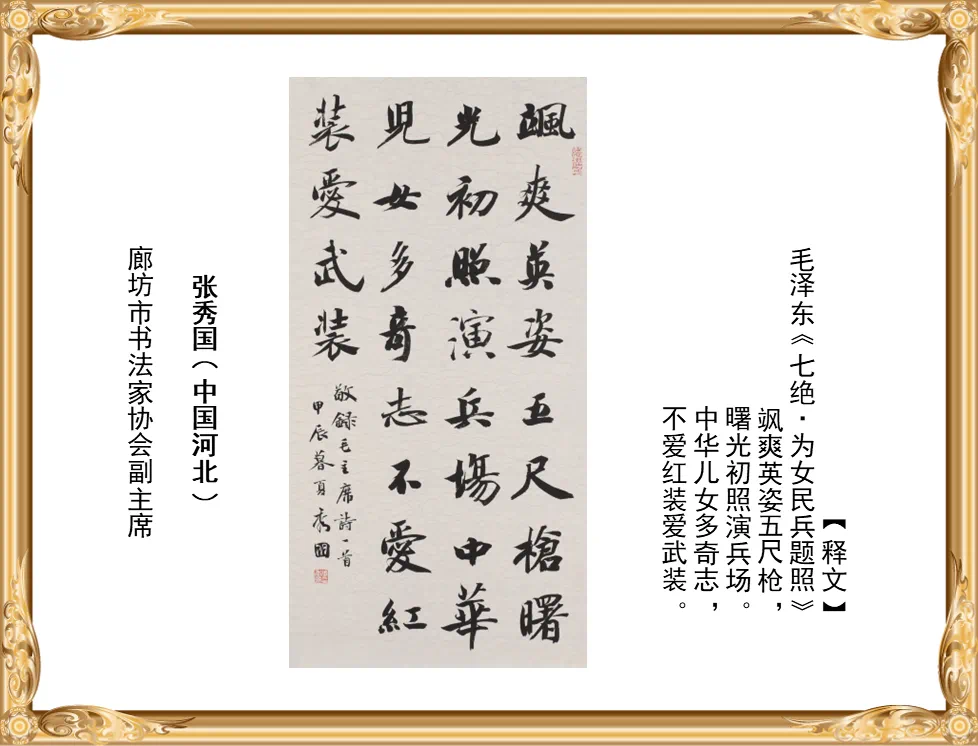 【释文】
毛泽东《七绝·为女民兵题照》
飒爽英姿五尺枪，
曙光初照演兵场。
中华儿女多奇志，
不爱红装爱武装。
颯爽英姿五尺槍曙
光初照演兵場中華
兒女多奇志不愛紅
装愛武装
敬録毛主席詩一首
甲辰暮夏秀國
张秀国（中国河北）
廊坊市书法家协会副主席